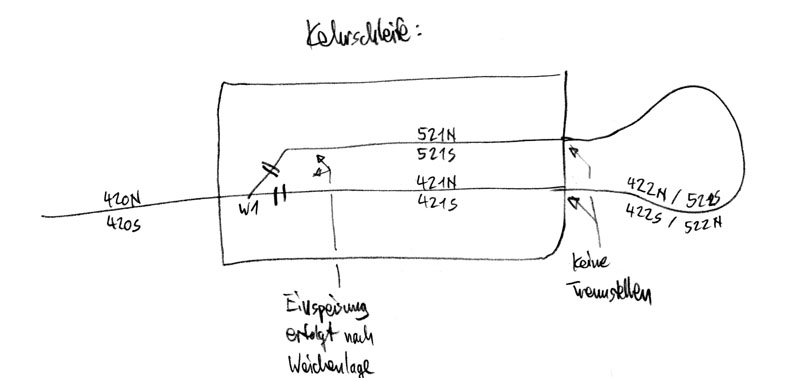 Kehrschleife:
521N
521S
420N
420S
W1
421N
421S
422N / 521S
422S / 522N
Einspeisung
erfolgt nach
Weichenlage
Keine
Trennstellen